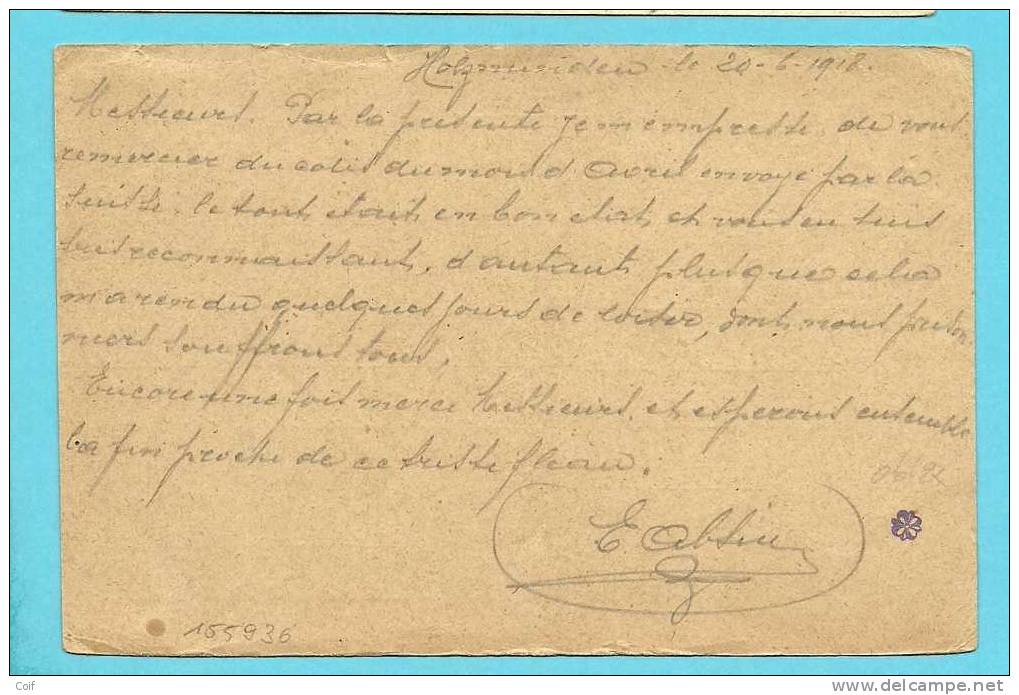 Holzminden le 20-6-1918.
Messieurs. Par la présente je m'empresse de vous
remercier du colis du mois d'Avril envoyé par la
Suisse. le tout était en bon état et vous en suis
très reconnaissant, d'autant plus que cela
m'a rendu quelques jours de loisir, dont nous prison
niers souffrons tous.
Encore une fois merci Messieurs. et esperons ensemble
la fin proche de ce triste fléau.
E.
155936
Coif
www.delcampe.net